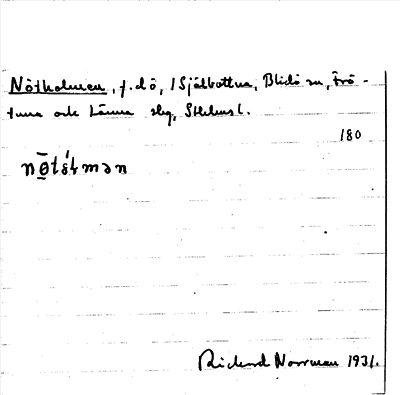 Nötholmen, f.d ö, i Själbottna, Blidö sn, Frö-
tuna och Länna slg, Sthlms l.
180
Rickard Norrman 1931.